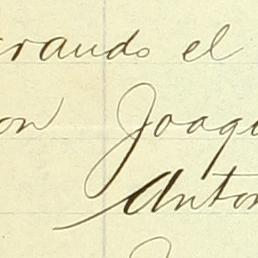 rando el
on Joaqu
Anton